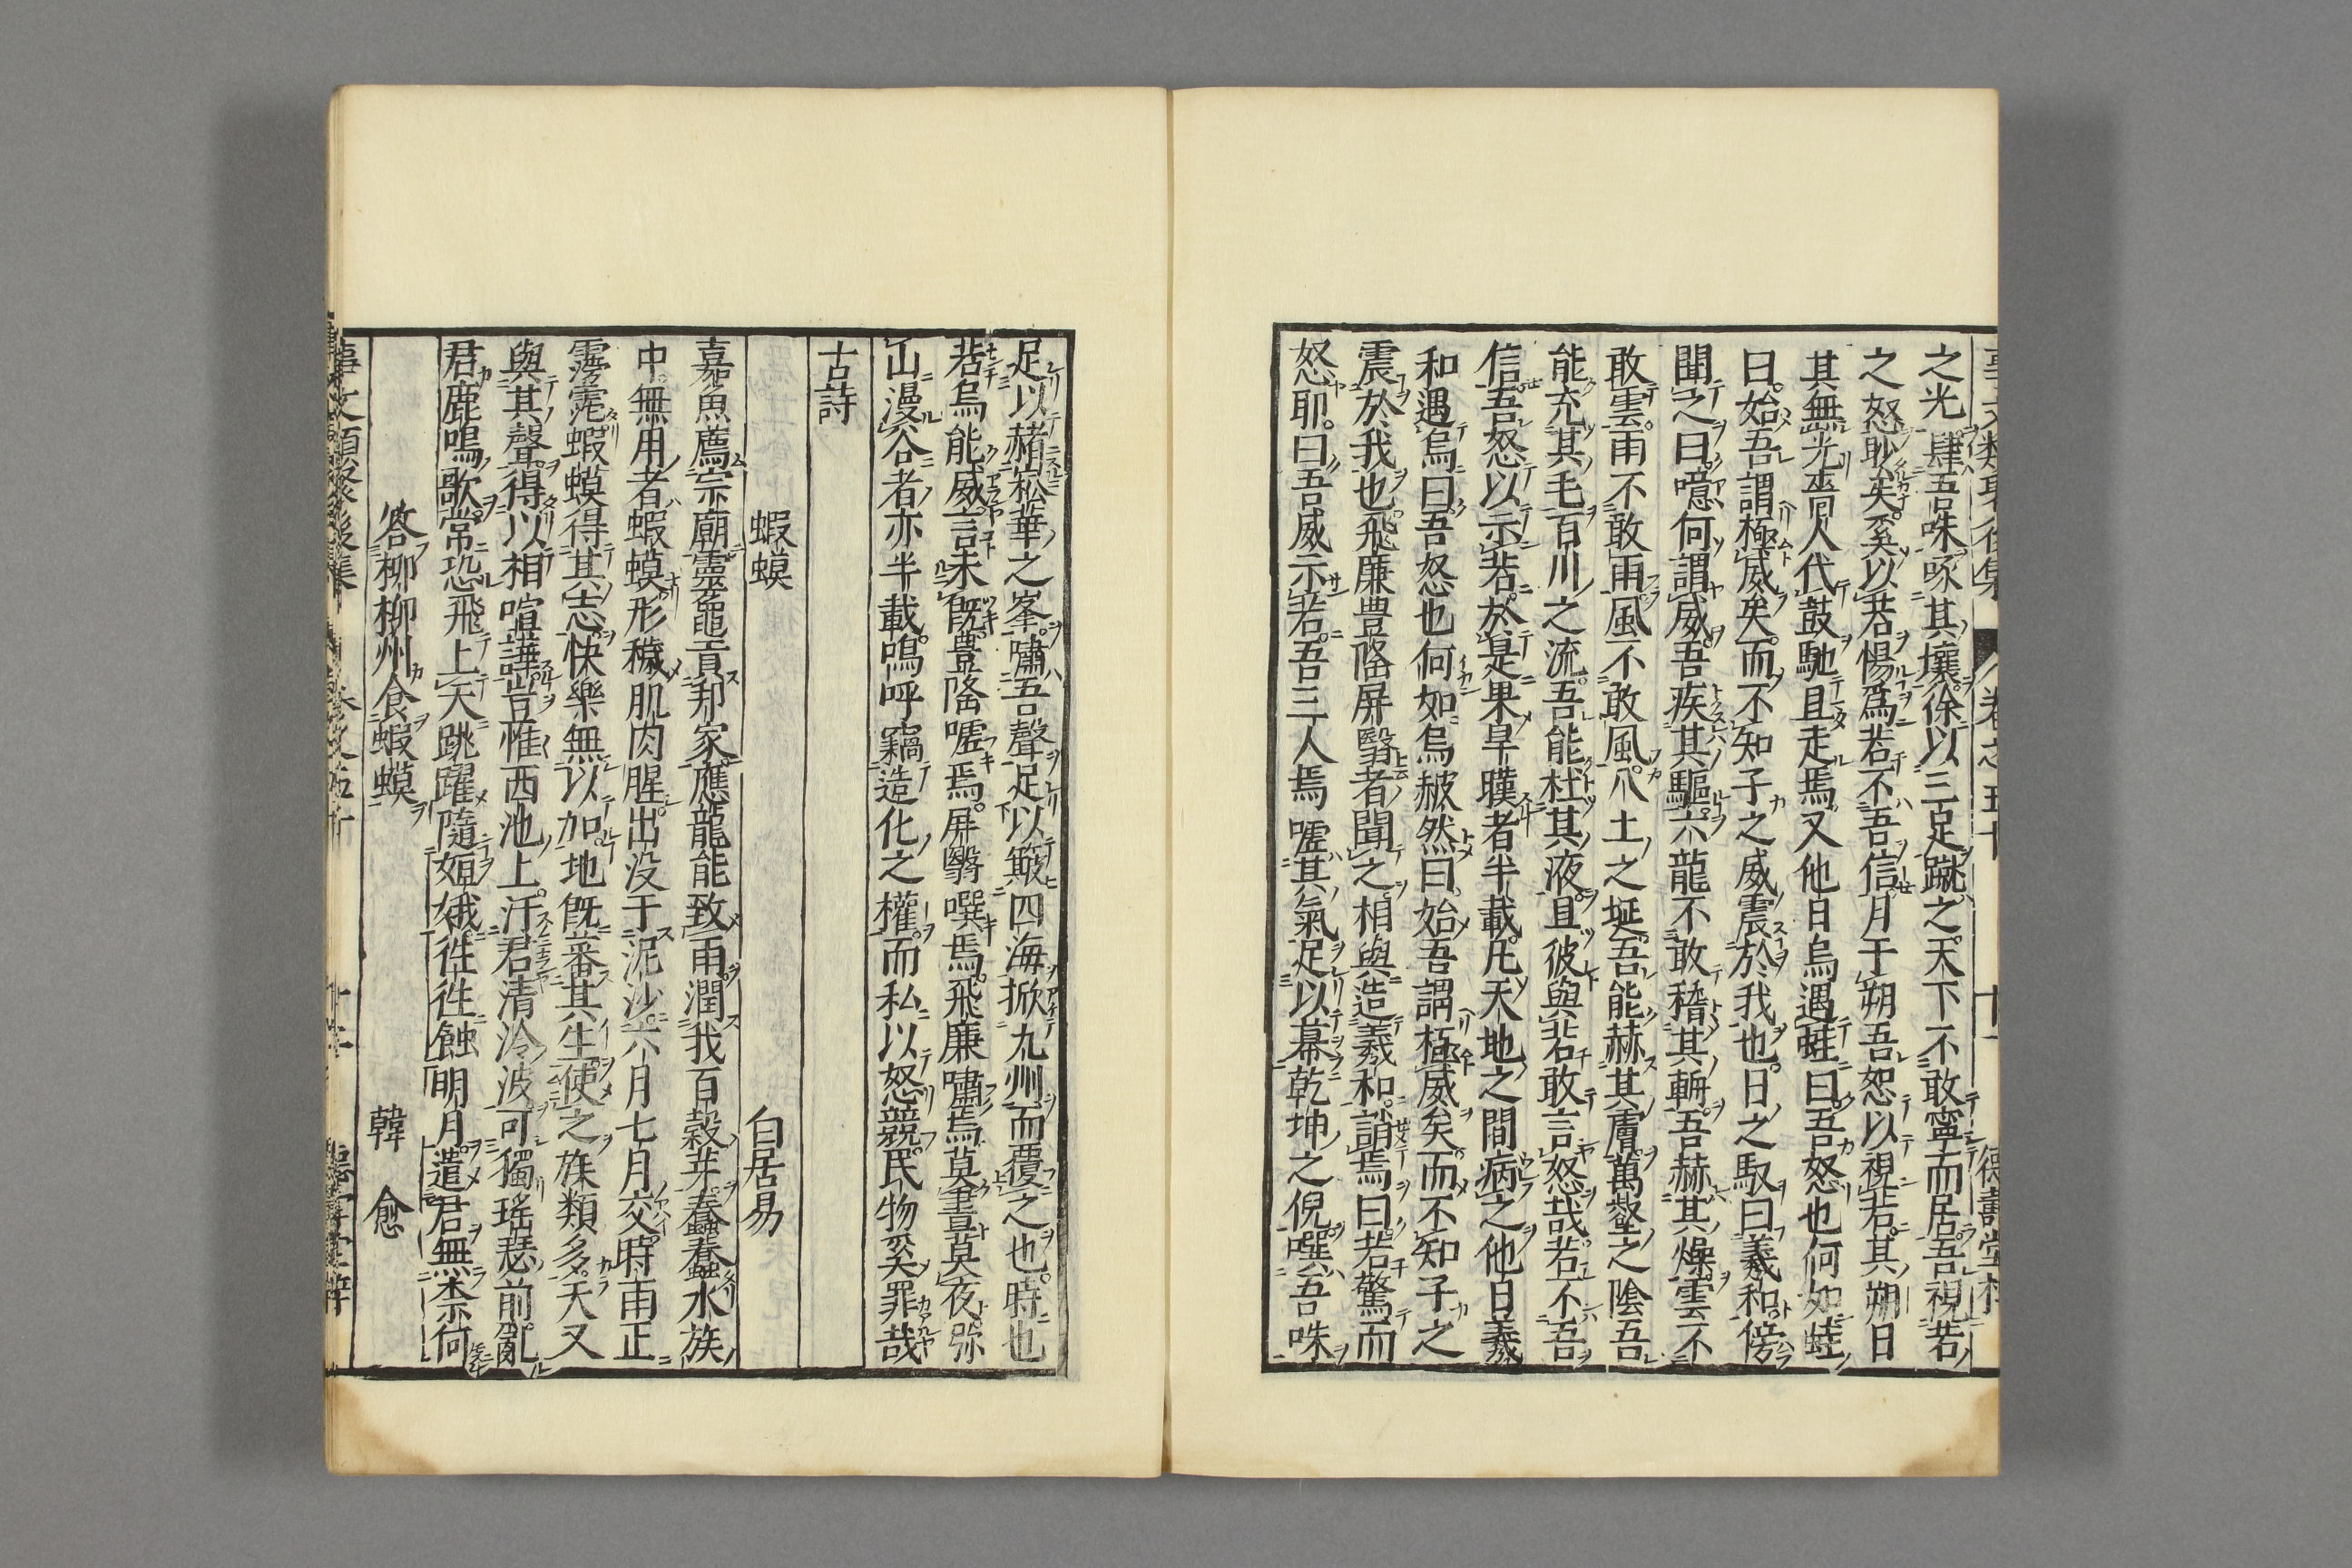 之光肆吾咮啄其壤徐以三足蹴之天下不敢寧而居吾視若
之怒眇矣奚以若惕爲若不吾信月于朔吾恕以視若其朔日
其無光嗇人代鼓馳且走焉又他日烏遇蛙曰吾怒也何如蛙
曰始吾謂極威矣而不知子之威震於我也日之馭曰羲和傍
聞之曰噫何謂威吾疾其驅六龍不敢稽其輧吾赫其燥雲不
敢雲雨不敢雨風不敢風八土之埏吾能赫其膚萬壑之陰吾
能充其毛百川之流吾能杜其液且彼與若敢言怒哉若不吾
信吾怒以示若於是果旱暵者半載凡天地之間病之他日羲
和遇烏曰吾怒也何如烏赧然曰始吾謂極威矣而不知子之
震於我也飛廉豊隆屏翳者聞之相與造羲和誚焉曰若驚而
怒耶曰吾威示若吾三人焉噓其氣足以幕乾坤之倪噀吾咮
足以赭崧華之峯嘯吾聲足以簸四海掀九州而覆之也時也
若烏能威言未既豊隆噓焉屏翳噀焉飛廉嘯焉莫晝莫夜弥
山漫谷者亦半載嗚呼竊造化之權而私以怒競民物奚罪哉
古詩
蝦蟆 白居易
嘉魚薦宗廟靈龜貢邦家應龍能致雨潤我百穀芽蠢蠢水族
中無用者蝦蟆形穢肌肉腥出没于泥沙六月七月交時雨正
霶霑蝦蟆得其志快樂無以加地既蕃其生使之族類多天又
與其聲得以相喧譁豈惟西池上汙君清泠波可獨瑤瑟前乱
君鹿鳴歌常恐飛上天跳躍隨姮娥徃徃蝕明月遣君無柰何
答柳柳州食蝦蟆 韓愈